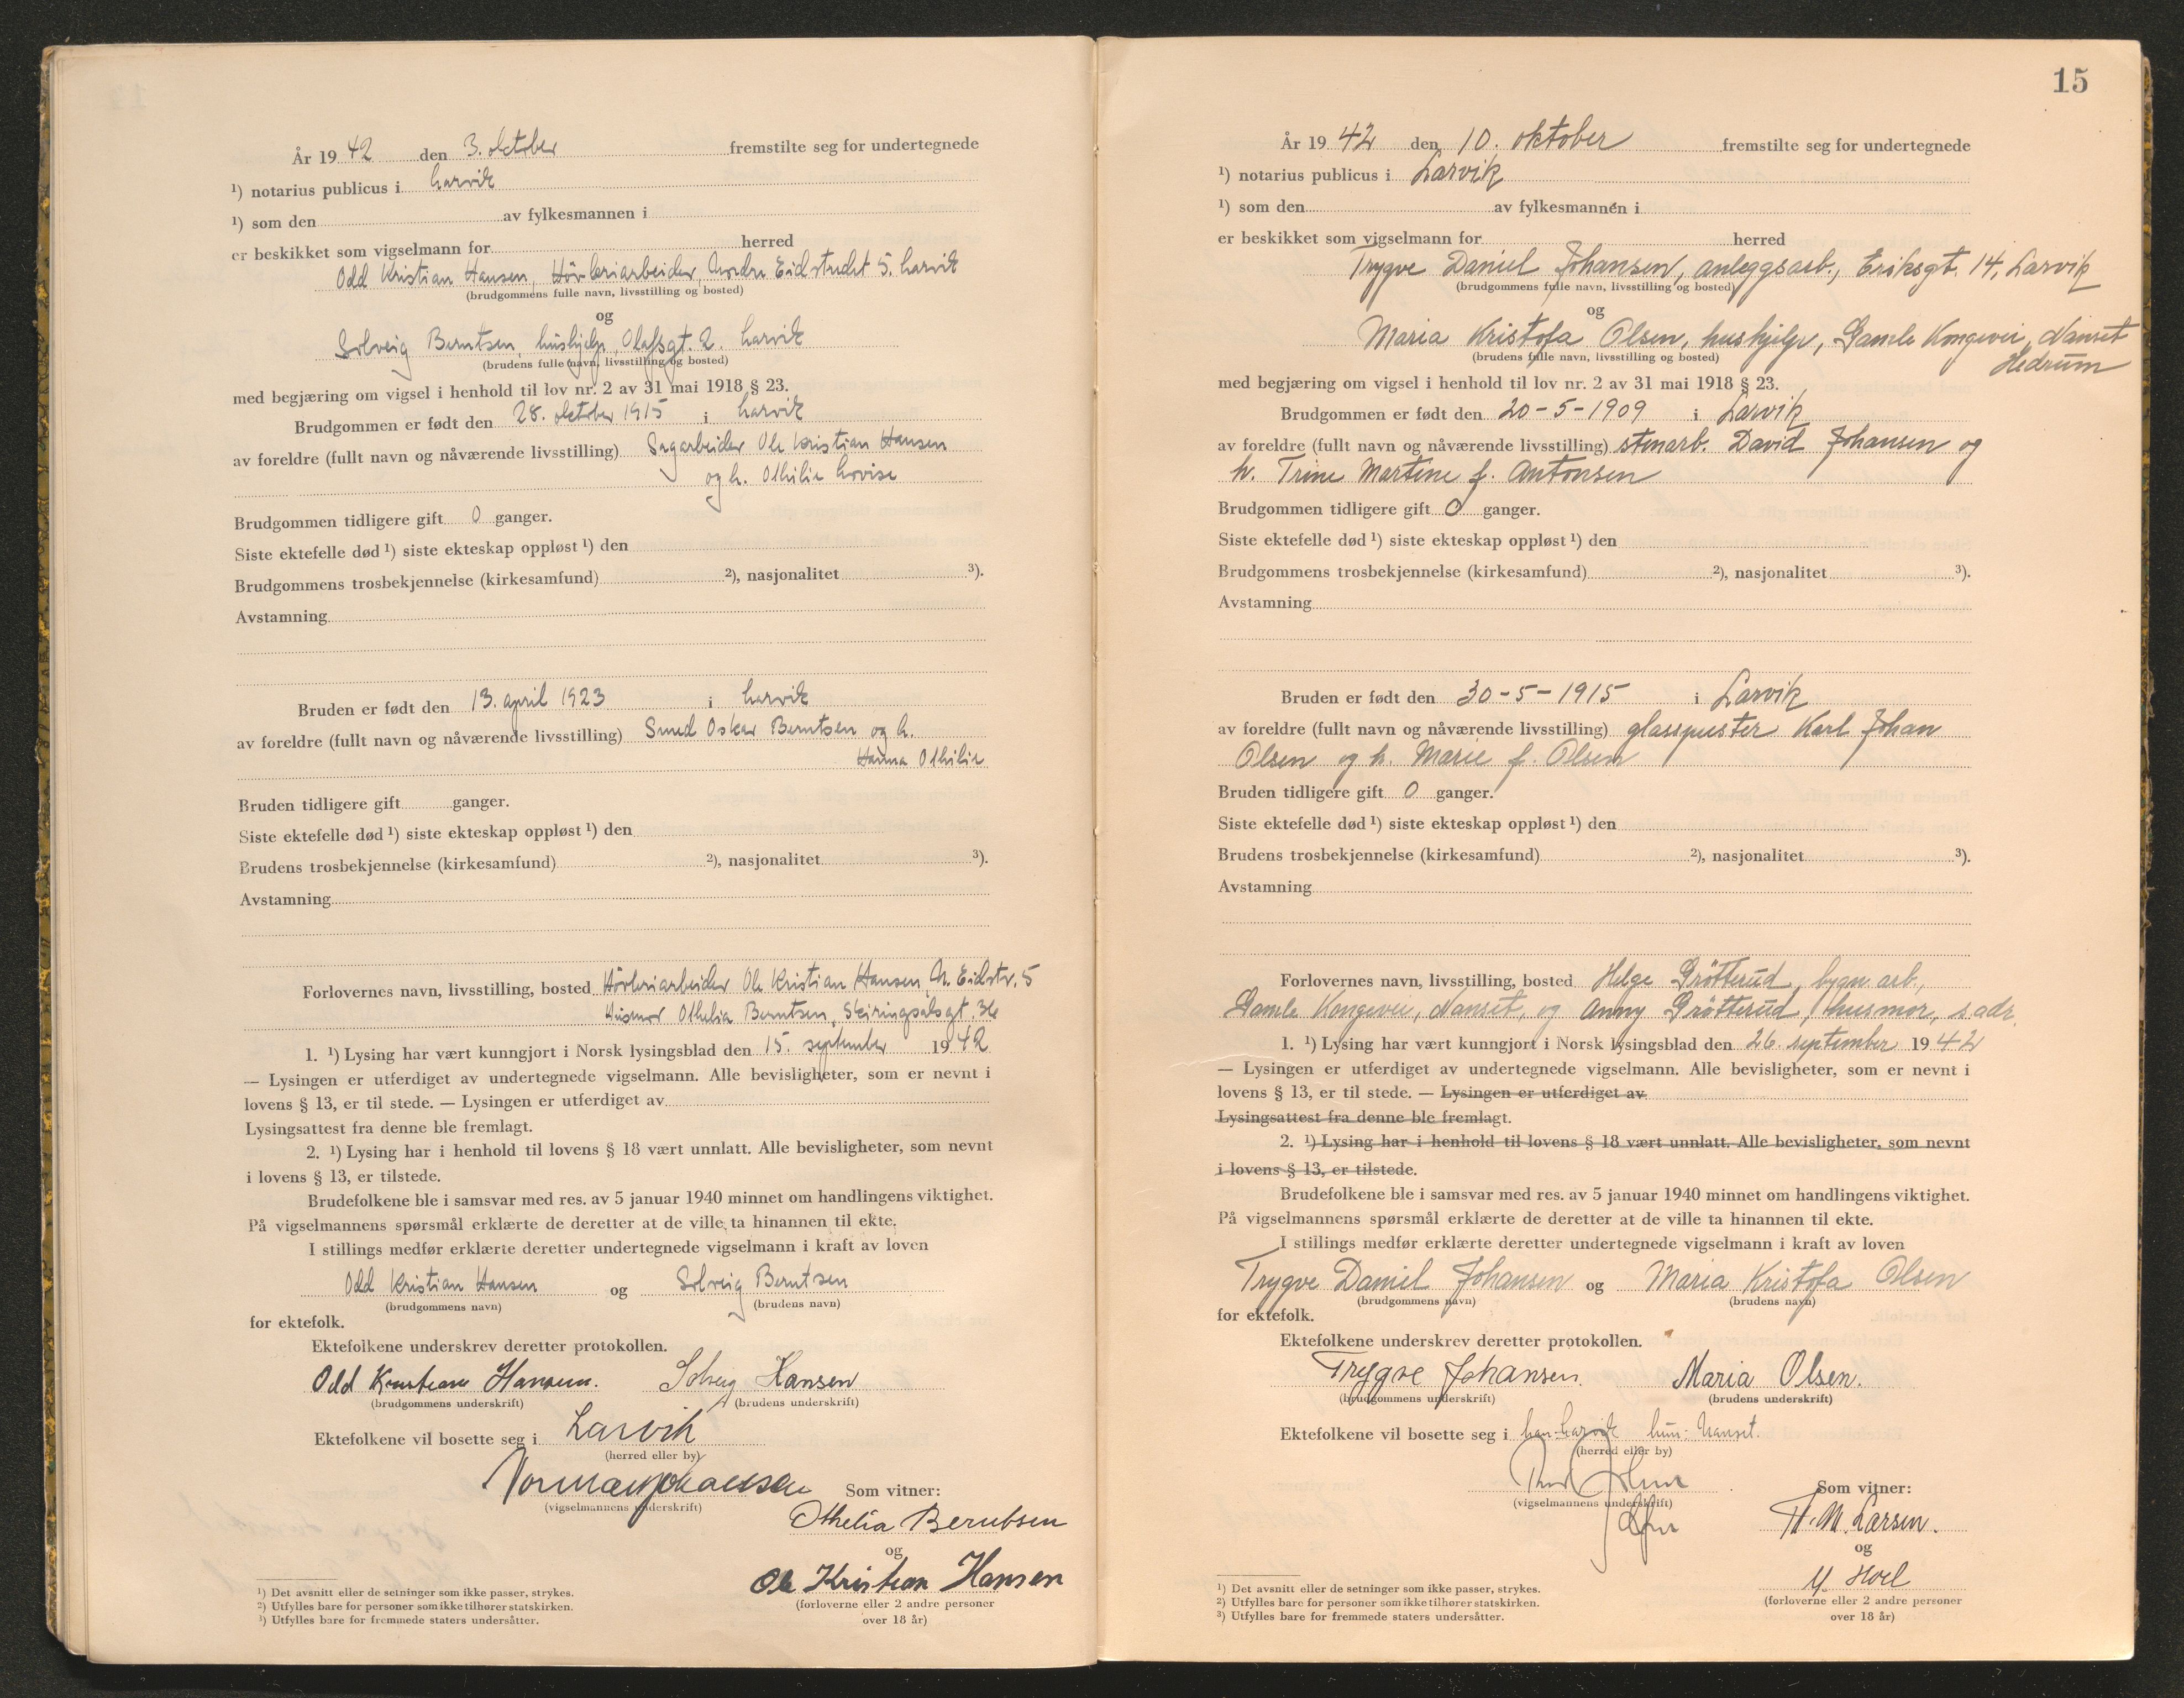 År 19 42 den 3. oktober fremstilte seg for undertegnede
¹) notarius publicus i Larvik
¹) som den av fylkesmannen i
er beskikket som vigselmann for herred
Odd Kristian Hansen, Høvleriarbeider, Nordre Eidstredet 5. Larvik
(brudgommens fulle navn, livsstilling og bosted)
og
Solveig Berntsen, hushjelp, Olafsgt. 2. Larvik
(brudens fulle navn, livsstilling og bosted)
med begjæring om vigsel i henhold til lov nr. 2 av 31 mai 1918 § 23.
Brudgommen er født den 28. oktober 1915 i Larvik
av foreldre (fullt navn og nåværende livsstilling) Sagarbeider Ole Kristian Hansen
og h. Othilie Lovise
Brudgommen tidligere gift 0 ganger.
Siste ektefelle død ¹) siste ekteskap oppløst ¹) den
Brudgommens trosbekjennelse (kirkesamfund) ²), nasjonalitet ³).
Avstamning
Bruden er født den 13. april 1923 i Larvik
av foreldre (fullt navn og nåværende livsstilling) Smed Oskar Berntsen og h.
Hanna Othilie
Bruden tidligere gift ganger.
Siste ektefelle død ¹) siste ekteskap oppløst ¹) den
Brudens trosbekjennelse (kirkesamfund) ²), nasjonalitet ³).
Avstamning
Forlovernes navn, livsstilling, bosted Høvleriarbeider Ole Kristian Hansen, N. Eidstr. 5
Husmor Othelia Berntsen, Skiringsalsgt. 36
1. ¹) Lysing har vært kunngjort i Norsk lysingsblad den 15. september 19 42
— Lysingen er utferdiget av undertegnede vigselmann. Alle bevisligheter, som er nevnt i
lovens § 13, er til stede. — Lysingen er utferdiget av
Lysingsattest fra denne ble fremlagt.
2. ¹) Lysing har i henhold til lovens § 18 vært unnlatt. Alle bevisligheter, som nevnt
i lovens § 13, er tilstede.
Brudefolkene ble i samsvar med res. av 5 januar 1940 minnet om handlingens viktighet.
På vigselmannens spørsmål erklærte de deretter at de ville ta hinannen til ekte.
I stillings medfør erklærte deretter undertegnede vigselmann i kraft av loven
Odd Kristian Hansen og Solveig Berntsen
(brudgommens navn) (brudens navn)
for ektefolk.
Ektefolkene underskrev deretter protokollen.
Odd Kristian Hansen. Solveig Hansen
(brudgommens underskrift) (brudens underskrift)
Ektefolkene vil bosette seg i Larvik
(herred eller by)
Som vitner:
(vigselmannens underskrift)
Othelia Berntsen
og
Ole Kristian Hansen
(forloverne eller 2 andre personer
over 18 år)
¹) Det avsnitt eller de setninger som ikke passer, strykes.
²) Utfylles bare for personer som ikke tilhører statskirken.
³) Utfylles bare for fremmede staters undersåtter.
15
År 19 42 den 10. oktober fremstilte seg for undertegnede
¹) notarius publicus i Larvik
¹) som den av fylkesmannen i
er beskikket som vigselmann for herred
Trygve Daniel Johansen, anleggsarb., Eriksgt. 14, Larvik
(brudgommens fulle navn, livsstilling og bosted)
og
Maria Kristofa Olsen, hushjelp, Gamle Kongevei, Nanset
Hedrum
(brudens fulle navn, livsstilling og bosted)
med begjæring om vigsel i henhold til lov nr. 2 av 31 mai 1918 § 23.
Brudgommen er født den 20-5-1909 i Larvik
av foreldre (fullt navn og nåværende livsstilling) stenarb. David Johansen og
h. Trine Martine f. Antonsen
Brudgommen tidligere gift 0 ganger.
Siste ektefelle død ¹) siste ekteskap oppløst ¹) den
Brudgommens trosbekjennelse (kirkesamfund) ²), nasjonalitet ³).
Avstamning
Bruden er født den 30-5-1915 i Larvik
av foreldre (fullt navn og nåværende livsstilling) glasspuster Karl Johan
Olsen og h. Marie f. Olsen
Bruden tidligere gift 0 ganger.
Siste ektefelle død ¹) siste ekteskap oppløst ¹) den
Brudens trosbekjennelse (kirkesamfund) ²), nasjonalitet ³).
Avstamning
Forlovernes navn, livsstilling, bosted Helge Grötterud, bygn. arb.,
Gamle Kongevei, Nanset, og Anny Grötterud, husmor, s. adr.
1. ¹) Lysing har vært kunngjort i Norsk lysingsblad den 26. september 19 42
— Lysingen er utferdiget av undertegnede vigselmann. Alle bevisligheter, som er nevnt i
lovens § 13, er til stede. — Lysingen er utferdiget av
Lysingsattest fra denne ble fremlagt.
2. ¹) Lysing har i henhold til lovens § 18 vært unnlatt. Alle bevisligheter, som nevnt
i lovens § 13, er tilstede.
Brudefolkene ble i samsvar med res. av 5 januar 1940 minnet om handlingens viktighet.
På vigselmannens spørsmål erklærte de deretter at de ville ta hinannen til ekte.
I stillings medfør erklærte deretter undertegnede vigselmann i kraft av loven
Trygve Daniel Johansen og Maria Kristofa Olsen
(brudgommens navn) (brudens navn)
for ektefolk.
Ektefolkene underskrev deretter protokollen.
Trygve Johansen. Maria Olsen.
(brudgommens underskrift) (brudens underskrift)
Ektefolkene vil bosette seg i han-Larvik hun-Nanset.
(herred eller by)
Som vitner:
(vigselmannens underskrift)
H. M. Larsen.
og
M. Hoel
(forloverne eller 2 andre personer
over 18 år)
¹) Det avsnitt eller de setninger som ikke passer, strykes.
²) Utfylles bare for personer som ikke tilhører statskirken.
³) Utfylles bare for fremmede staters undersåtter.